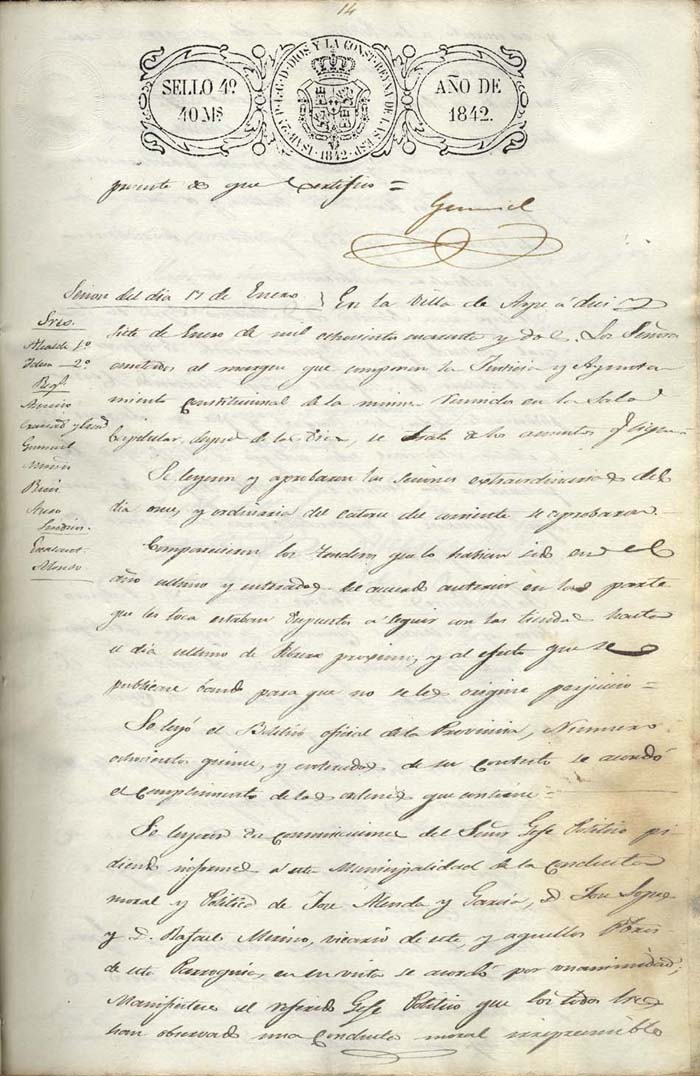 14
SELLO 4º
40 Ms
ISAB. 2ª P. L. G. D. DIOS Y LA CONST. REYNA DE LAS ESP.
1842
AÑO DE
1842.
de que Certifico =
Sesion del dia 17 de Enero
Sres.
Alcalde 1º
Idem 2º
Síndicos.
En la Villa de Aspe á diez y
siete de Enero de mil ochocientos cuarenta y dos. Los Señores
anotados al margen que componen la Justicia y Ayunta
miento Constitucional de la misma reunidos en la Sala
Capitular, de la se trato de los asuntos
Se leyeron y aprobaron las sesiones extraordinaria del
dia once, y ordinaria del catorce del corriente se aprobaron.
Comparecieron los tenderos que lo habian sido en el
año ultimo y enterados del acuerdo anterior en la parte
que les toca estaban dispuestos a seguir con las tiendas hasta
el dia ultimo de Febrero proximo, y al efecto que se
publicase bando para que no se les origine perjuicio =
Se leyó el Boletin oficial de la Provincia, Numero
ochocientos quince, y enterados de su contesto se acordó
el cumplimiento de las ordenes que contiene =
Se leyeron comunicaciones del Señor Gefe Politico pi
diendo informes á esta Municipalidad de la Conducta
moral y Politica de Jose y García, D. Jose Lopez
y D. Rafael Merino, vicario de este, y aquellos Pbros
de esta Parroquia, en su vista se acordó por unanimidad,
Manifestar al referido Gefe Politico que los todos tres
han observado una Conducta moral irreprensible